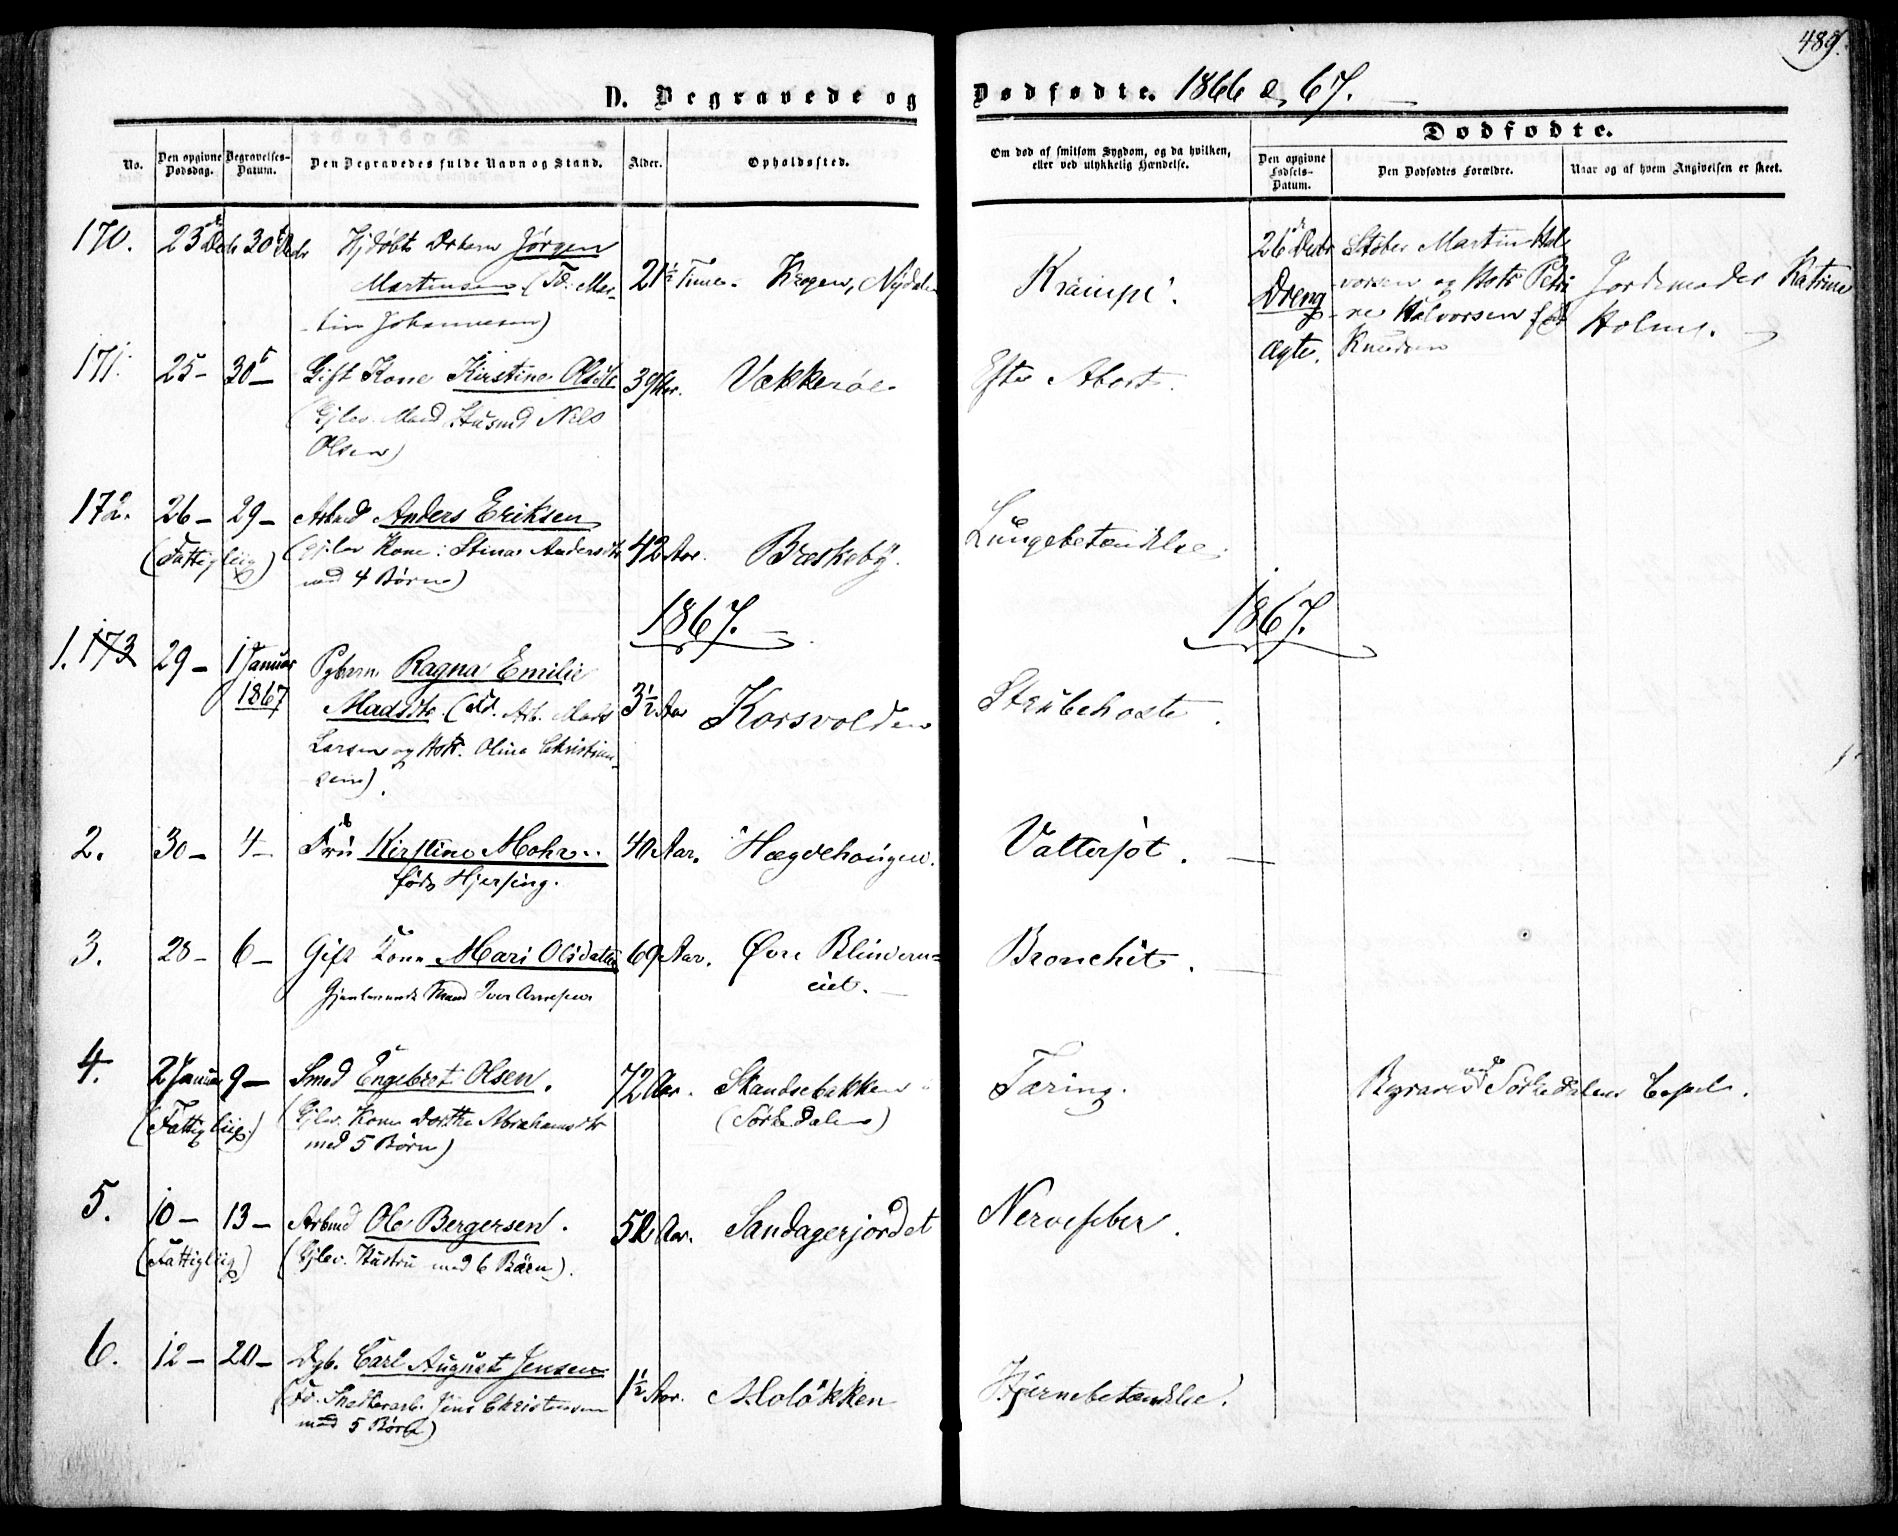 489.
D. Begravede og Dødfødte. 1866 & 67.
Dødfødte.
No.
Den opgivne Dødsdag.
Begravelses-Datum.
Den Begravedes fulde Navn og Stand.
Alder.
Opholdssted.
Om død af smitsom Sygdom, og da hvilken, eller ved ulykkelig Hændelse.
Den opgivne Fødsels-Datum.
Den Dødfødtes Forældre.
Naar og af hvem Angivelsen er skeet.
170. 23de Decbr 30te Decbr Hjdøbt Drbarn Jørgen 21½ Timer. Krogen, Nydalen Krampe.
Martinsen (Fd. Mar-
tin Johannesen)
26de Decbr Støber Martin Hal-
Dreng vorsen og Hstr. Petri- Jordemoder Katrine
ne Halvorsen født Holm.
ægte. Knudsen
171. 25 – 30te – Gift Kone Kirstine Olsdtr 39 Aar. Vækkerøe Efter Abort.
(Gjlev. Mand Husmd Nils
Olsen)
172. 26 – 29 – Arbmd Anders Eriksen 42 Aar. Briskeby. Lungebetændelse.
(Fattiglig) (Gjlev Kone: Stina Andersdtr
med 4 Børn)
1867. 1867.
1. 173 29 – 1 Januar Pgbarn Ragna Emilie 3½ Aar Korsvolden Strubehoste.
1867 Madsdtr (Fd. Arb. Mads
Larsen og Hstr. Oline Christian-
sen).
2. 30 – 4 – Fru Kirstine Mohr 40 Aar. Hægdehaugen. Vattersot.
født Hjersing.
3. 28 – 6 – Gift Kone Mari Olsdatter 69 Aar. Øvre Blindern-
eiet. Bronchit.
Gjenlevende Mand Iver Arnesen
4. 2 Januar 9 – Smed Engebret Olsen. 72 Aar. Skandsebakken Tæring. Begraves ved Sørkedalens Capel.
(Fattiglig.) (Gjlev. Kone Dorthe Abrahamsdtr (Sørkedalen)
med 5 Børn)
5. 10 – 13 – Arbmd Ole Bergersen. 52 Aar. Sandagerjordet Nervefeber.
(Fattiglig) (Gjlev. Hustru med 6 Børn).
6. 12 – 20 – Dgb. Carl August Jensen 1½ Aar. Moløkken Hjernebetændelse.
(Fd. Jens Christensen
med 5 Børn)